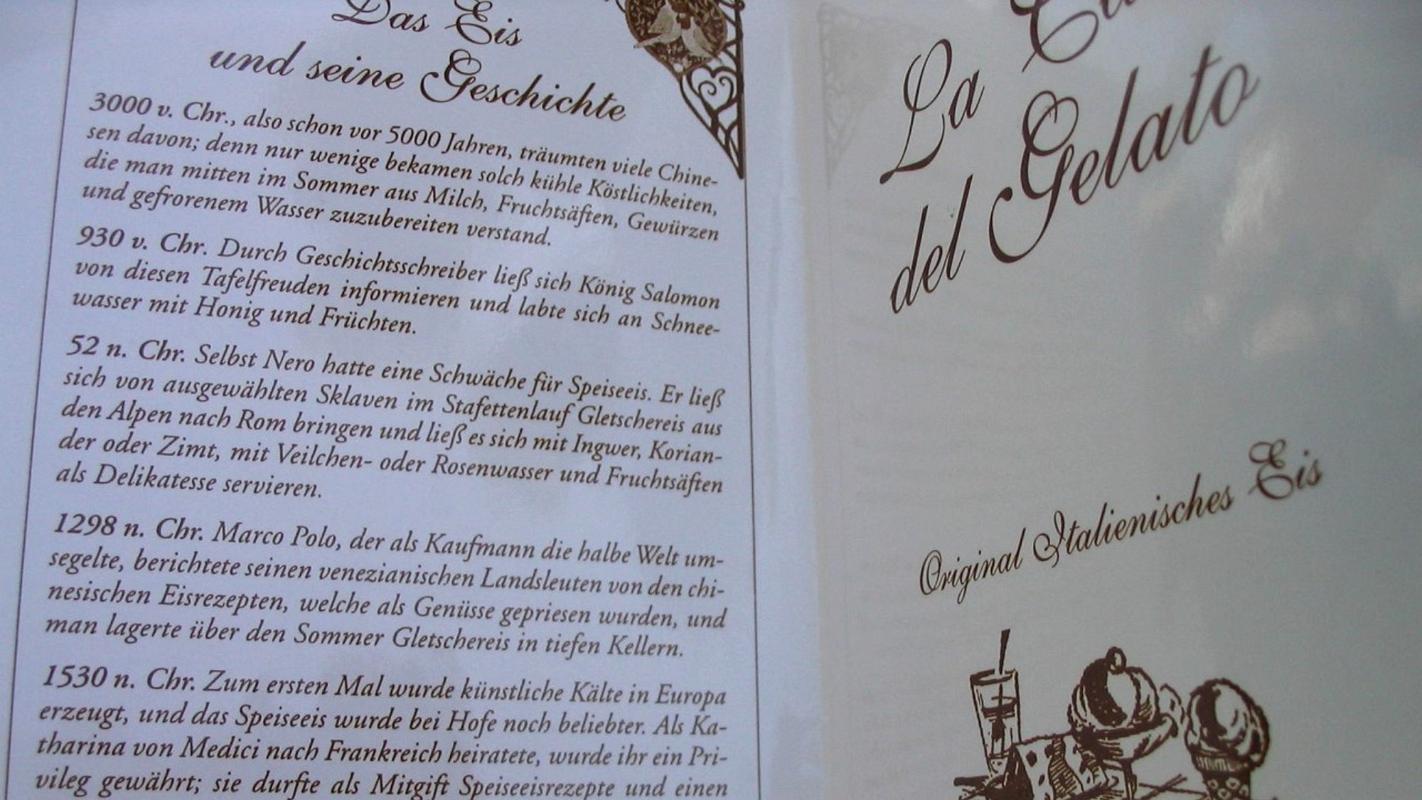 Das Eis
und seine Geschichte
3000 v. Chr., also schon vor 5000 Jahren, träumten viele Chine-
sen davon; denn nur wenige bekamen solch kühle Köstlichkeiten,
die man mitten im Sommer aus Milch, Fruchtsäften, Gewürzen
und gefrorenem Wasser zuzubereiten verstand.
930 v. Chr. Durch Geschichtsschreiber ließ sich König Salomon
von diesen Tafelfreuden informieren und labte sich an Schnee-
wasser mit Honig und Früchten.
52 n. Chr. Selbst Nero hatte eine Schwäche für Speiseeis. Er ließ
sich von ausgewählten Sklaven im Stafettenlauf Gletschereis aus
den Alpen nach Rom bringen und ließ es sich mit Ingwer, Korian-
der oder Zimt, mit Veilchen- oder Rosenwasser und Fruchtsäften
als Delikatesse servieren.
1298 n. Chr. Marco Polo, der als Kaufmann die halbe Welt um-
segelte, berichtete seinen venezianischen Landsleuten von den chi-
nesischen Eisrezepten, welche als Genüsse gepriesen wurden, und
man lagerte über den Sommer Gletschereis in tiefen Kellern.
1530 n. Chr. Zum ersten Mal wurde künstliche Kälte in Europa
erzeugt, und das Speiseeis wurde bei Hofe noch beliebter. Als Ka-
tharina von Medici nach Frankreich heiratete, wurde ihr ein Pri-
vileg gewährt; sie durfte als Mitgift Speiseeisrezepte und einen
La
del Gelato
Original Italienisches Eis